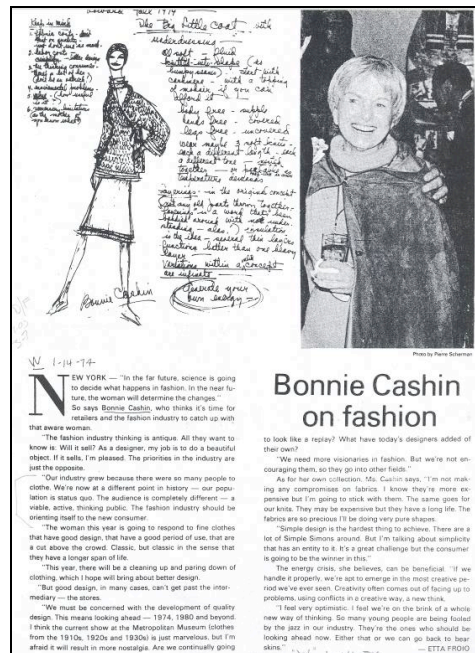 Toward Fall 1974
The Big Little Coat with
underdressing
Keep in mind
all soft - thick
cashmere - with a
of mohair if you can
afford it
body free - supple
hands free - covered
legs free - uncovered
wear maybe 3 soft knits
each a different length - each
a different tone
together
temperature demands
layerings - in the original concept
"layerings" is a word that's been
is the idea - several thin layers
functions better than one heavy
layer
Variations within a concept
are infinite
generate your
own energy
Bonnie Cashin
Photo by Pierre Scherman
W 1-14-74
Bonnie Cashin
on fashion
NEW YORK — "In the far future, science is going
to decide what happens in fashion. In the near fu-
ture, the woman will determine the changes."
So says Bonnie Cashin, who thinks it's time for
retailers and the fashion industry to catch up with
that aware woman.
"The fashion industry thinking is antique. All they want to
know is: Will it sell? As a designer, my job is to do a beautiful
object. If it sells, I'm pleased. The priorities in the industry are
just the opposite.
"Our industry grew because there were so many people to
clothe. We're now at a different point in history — our popu-
lation is status quo. The audience is completely different — a
viable, active, thinking public. The fashion industry should be
orienting itself to the new consumer.
"The woman this year is going to respond to fine clothes
that have good design, that have a good period of use, that are
a cut above the crowd. Classic, but classic in the sense that
they have a longer span of life.
"This year, there will be a cleaning up and paring down of
clothing, which I hope will bring about better design.
"But good design, in many cases, can't get past the inter-
mediary — the stores.
"We must be concerned with the development of quality
design. This means looking ahead — 1974, 1980 and beyond.
I think the current show at the Metropolitan Museum (clothes
from the 1910s, 1920s and 1930s) is just marvelous, but I'm
afraid it will result in more nostalgia. Are we continually going
to look like a replay? What have today's designers added of
their own?
"We need more visionaries in fashion. But we're not en-
couraging them, so they go into other fields."
As for her own collection, Ms. Cashin says, "I'm not mak-
ing any compromises on fabrics. I know they're more ex-
pensive but I'm going to stick with them. The same goes for
our knits. They may be expensive but they have a long life. The
fabrics are so precious I'll be doing very pure shapes.
"Simple design is the hardest thing to achieve. There are a
lot of Simple Simons around. But I'm talking about simplicity
that has an entity to it. It's a great challenge but the consumer
is going to be the winner in this."
The energy crisis, she believes, can be beneficial. "If we
handle it properly, we're apt to emerge in the most creative pe-
riod we've ever seen. Creativity often comes out of facing up to
problems, using conflicts in a creative way, a new think.
"I feel very optimistic. I feel we're on the brink of a whole
new way of thinking. So many young people are being fooled
by the jazz in our industry. They're the ones who should be
looking ahead now. Either that or we can go back to bear
skins."
— ETTA FROIO